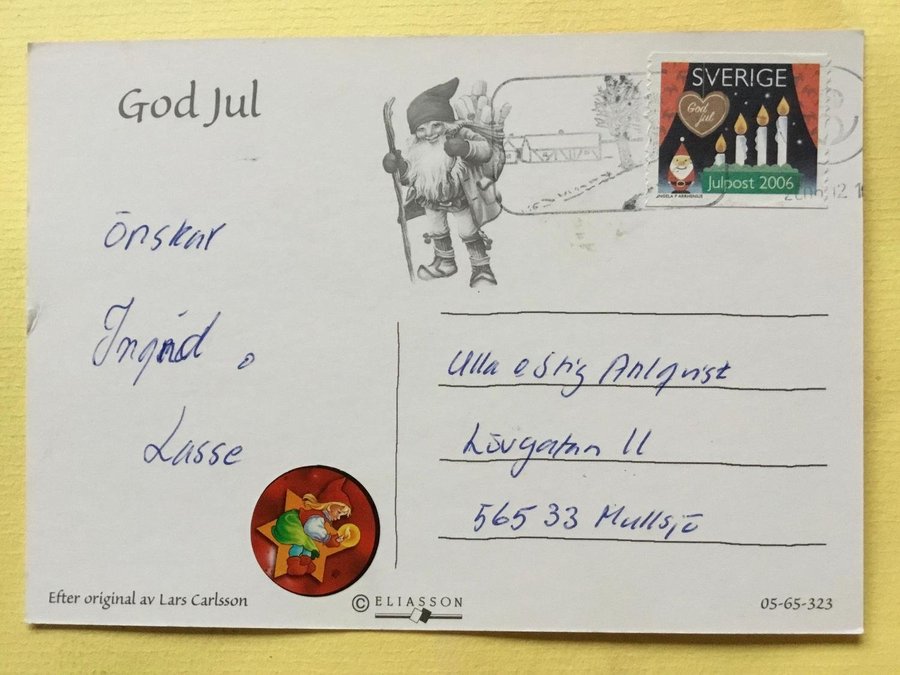 God Jul
SVERIGE
God
jul
Julpost 2006
INGELA P ARRHENIUS
Önskar
Ingrid o
Lasse
Ulla o Stig Ahlqvist
Lövgatan 11
565 33 Mullsjö
Efter original av Lars Carlsson
© ELIASSON
05-65-323